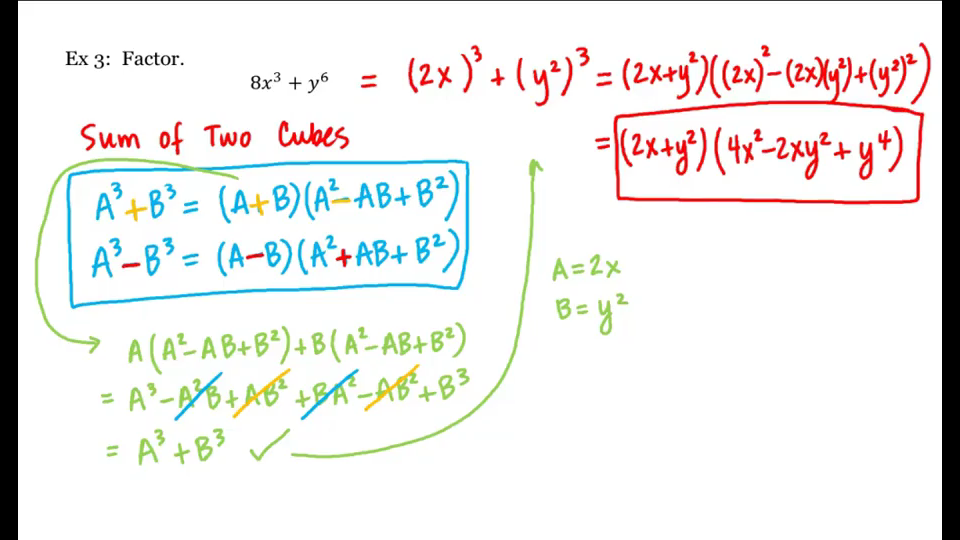 Ex 3: Factor.
8x³ + y⁶ = (2x)³ + (y²)³ = (2x+y²)((2x)²-(2x)(y²)+(y²)²)
= (2x+y²)(4x²-2xy²+y⁴)
Sum of Two Cubes
A³+B³ = (A+B)(A²-AB+B²)
A³-B³ = (A-B)(A²+AB+B²)
A=2x
B=y²
A(A²-AB+B²)+B(A²-AB+B²)
= A³-A²B+AB²+BA²-AB²+B³
= A³+B³ ✓